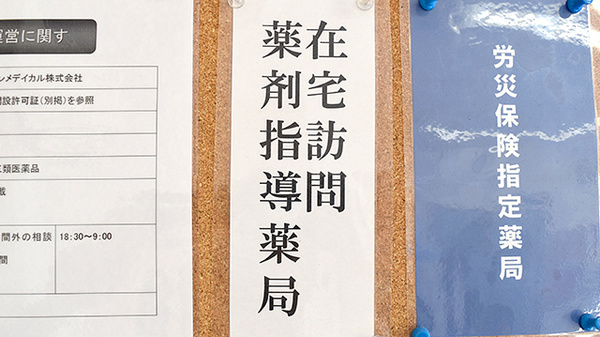 運営に関す
ンメデイカル株式会社
設許可証(別掲)を参照
類医薬品
載
間外の相談 18:30〜9:00
間
在宅訪問
薬剤指導薬局
労災保険指定薬局